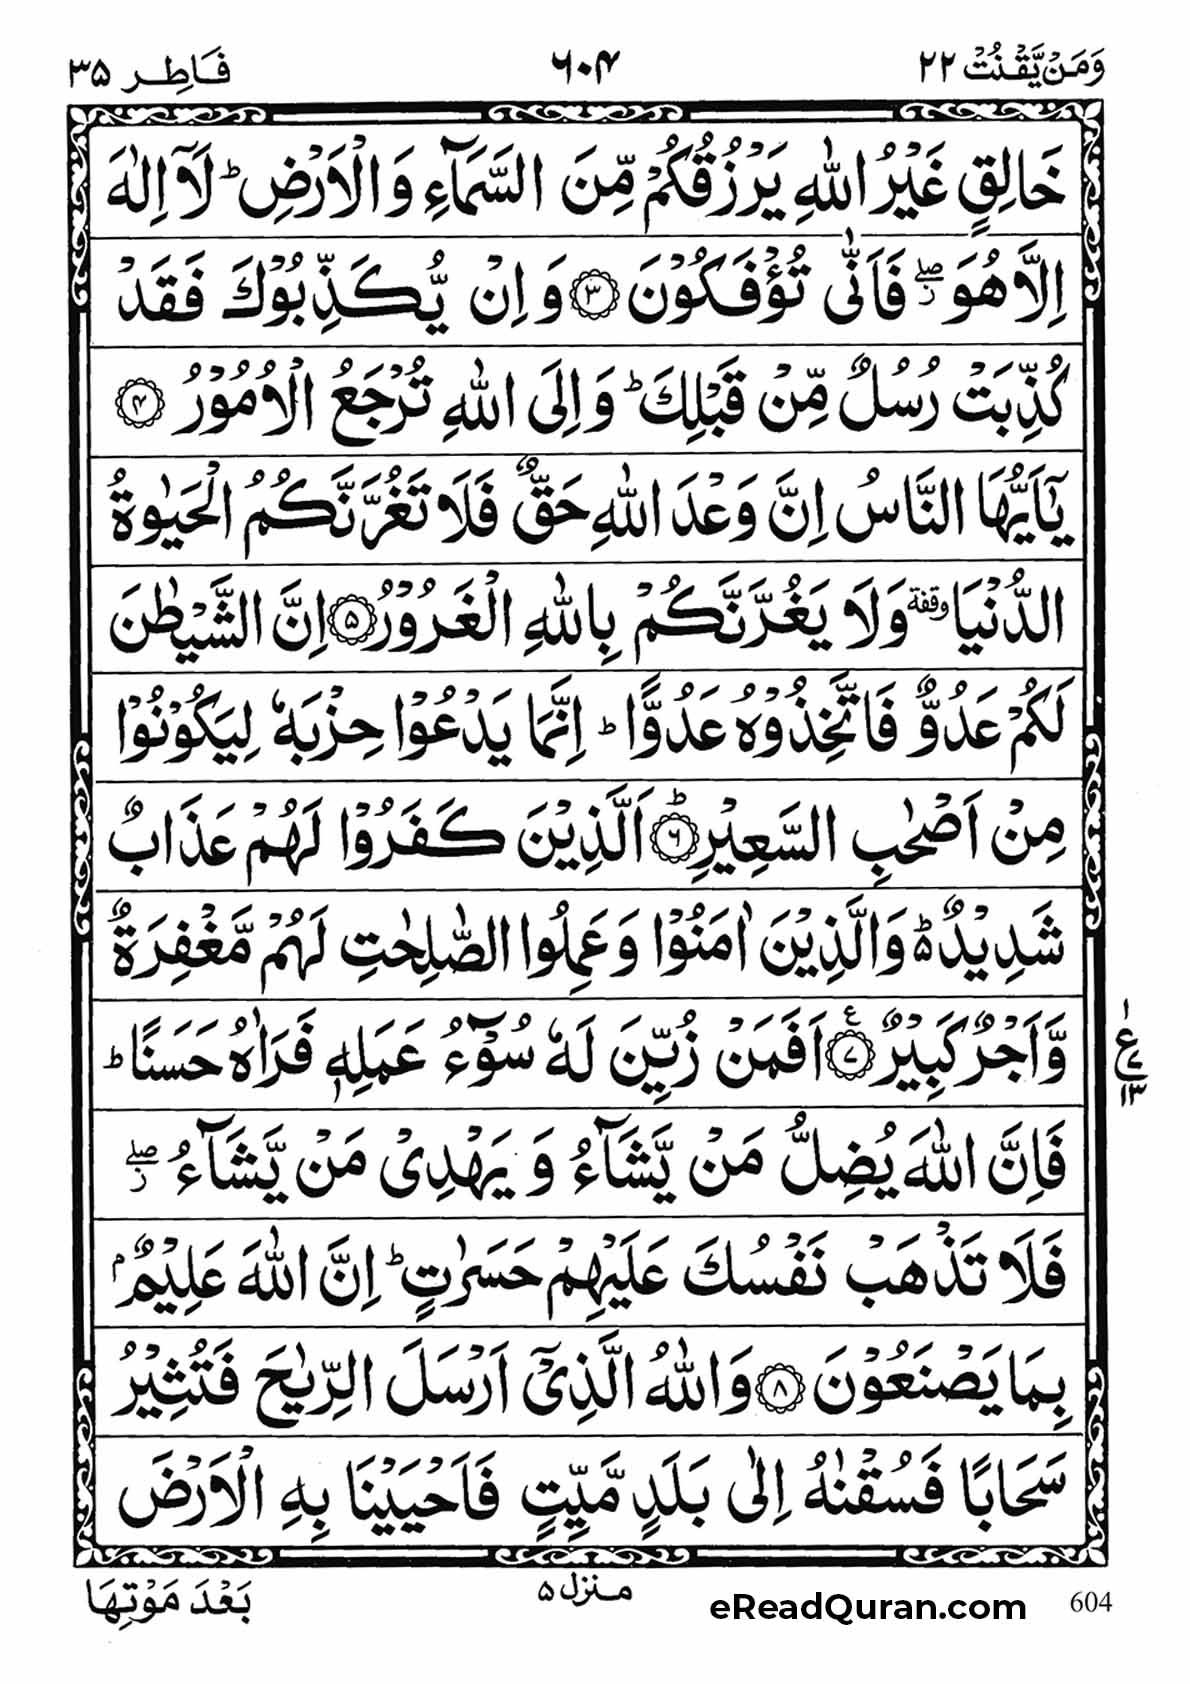 وَمَنۡ يَّقۡنُتۡ ٢٢
٦٠٤
فَاطِر ٣٥
خَالِقٍ غَيۡرُ اللّٰهِ يَرۡزُقُكُمۡ مِّنَ السَّمَآءِ وَالۡاَرۡضِ ؕ لَاۤ اِلٰهَ
اِلَّا هُوَ ۖ فَاَنّٰى تُؤۡفَكُوۡنَ ﴿۳﴾ وَاِنۡ يُّكَذِّبُوۡكَ فَقَدۡ
كُذِّبَتۡ رُسُلٌ مِّنۡ قَبۡلِكَ ؕ وَاِلَى اللّٰهِ تُرۡجَعُ الۡاُمُوۡرُ ﴿۴﴾
يٰۤاَيُّهَا النَّاسُ اِنَّ وَعۡدَ اللّٰهِ حَقٌّ فَلَا تَغُرَّنَّكُمُ الۡحَيٰوةُ
الدُّنۡيَا وقفة وَلَا يَغُرَّنَّكُمۡ بِاللّٰهِ الۡغَرُوۡرُ ﴿۵﴾ اِنَّ الشَّيۡطٰنَ
لَكُمۡ عَدُوٌّ فَاتَّخِذُوۡهُ عَدُوًّا ؕ اِنَّمَا يَدۡعُوۡا حِزۡبَهٗ لِيَكُوۡنُوۡا
مِنۡ اَصۡحٰبِ السَّعِيۡرِ ؕ ﴿۶﴾ اَلَّذِيۡنَ كَفَرُوۡا لَهُمۡ عَذَابٌ
شَدِيۡدٌ ؕ وَالَّذِيۡنَ اٰمَنُوۡا وَعَمِلُوا الصّٰلِحٰتِ لَهُمۡ مَّغۡفِرَةٌ
وَّاَجۡرٌ كَبِيۡرٌ ﴿۷﴾ ع اَفَمَنۡ زُيِّنَ لَهٗ سُوۡٓءُ عَمَلِهٖ فَرَاٰهُ حَسَنًا ؕ
١ ع ٧ ١٣
فَاِنَّ اللّٰهَ يُضِلُّ مَنۡ يَّشَآءُ وَيَهۡدِىۡ مَنۡ يَّشَآءُ ۖ
فَلَا تَذۡهَبۡ نَفۡسُكَ عَلَيۡهِمۡ حَسَرٰتٍ ؕ اِنَّ اللّٰهَ عَلِيۡمٌۢ
بِمَا يَصۡنَعُوۡنَ ﴿۸﴾ وَاللّٰهُ الَّذِىۡۤ اَرۡسَلَ الرِّيٰحَ فَتُثِيۡرُ
سَحَابًا فَسُقۡنٰهُ اِلٰى بَلَدٍ مَّيِّتٍ فَاَحۡيَيۡنَا بِهِ الۡاَرۡضَ
بَعۡدَ مَوۡتِهَا
منزل ۵
eReadQuran.com
604